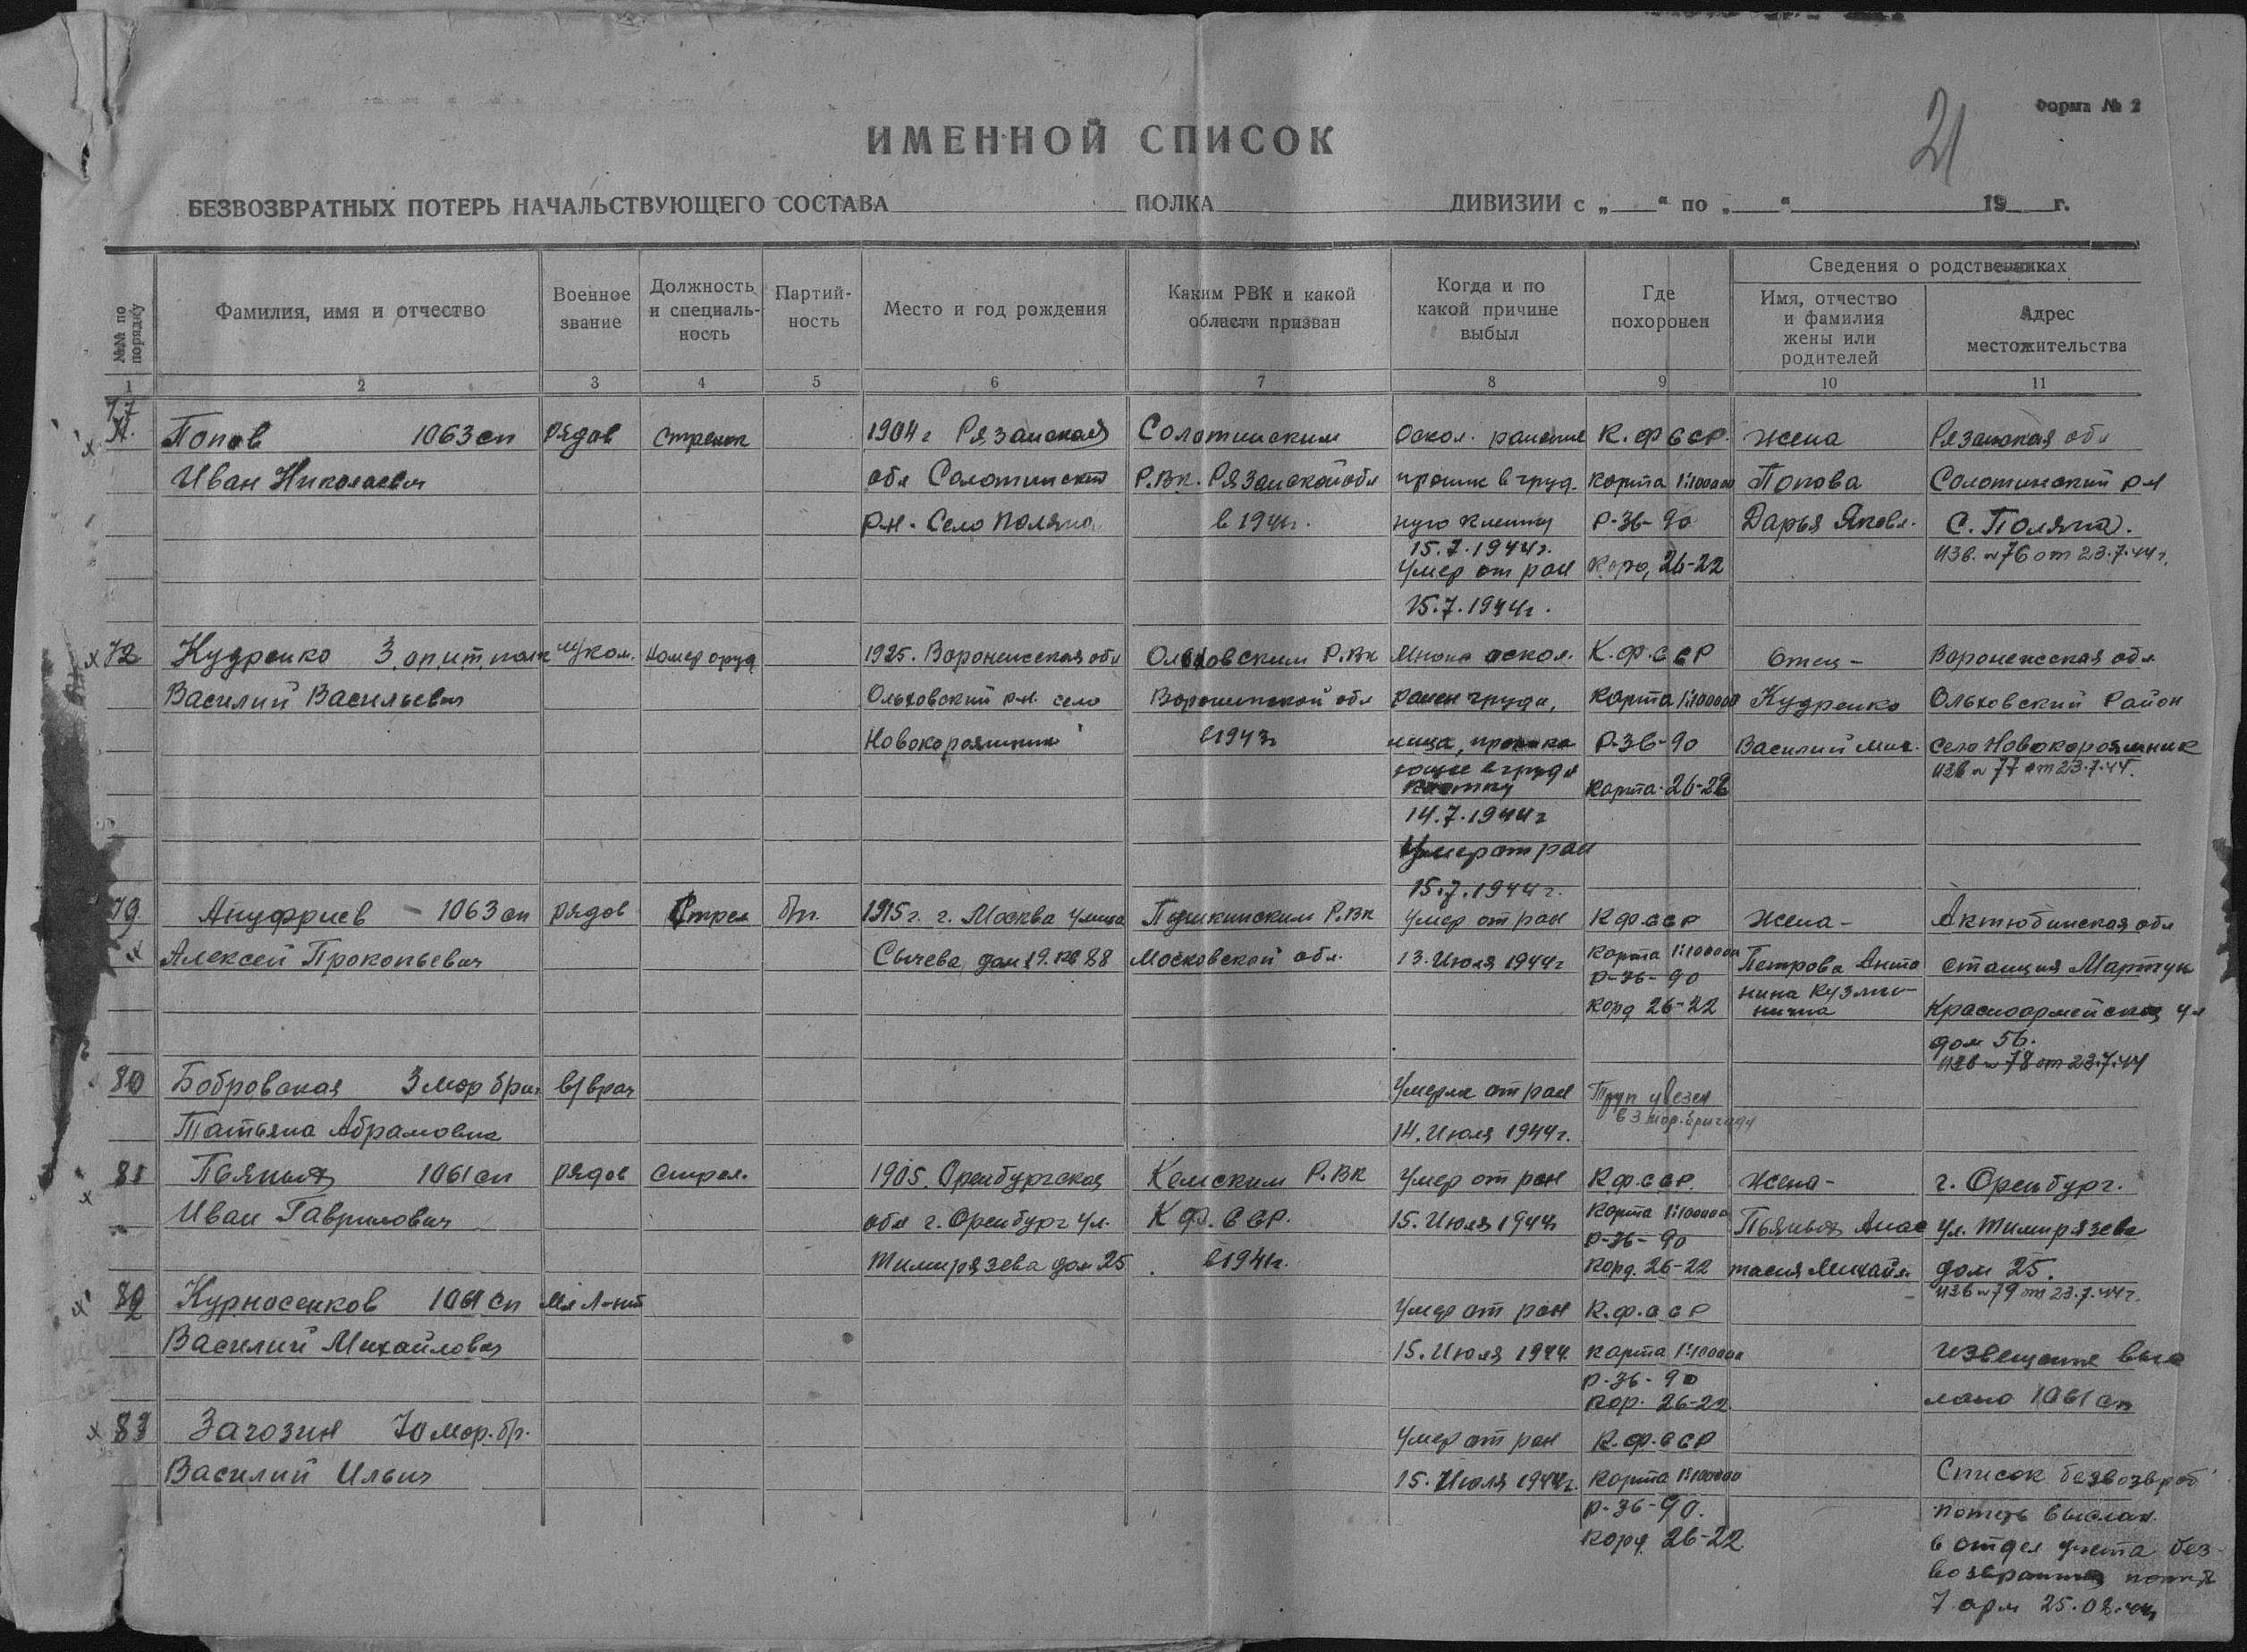 Форма № 2
21
ИМЕННОЙ СПИСОК
БЕЗВОЗВРАТНЫХ ПОТЕРЬ НАЧАЛЬСТВУЮЩЕГО СОСТАВА ПОЛКА ДИВИЗИИ с „ “ по „ “ 19 г.
№№ по порядку
Фамилия, имя и отчество
Военное звание
Должность и специальность
Партийность
Место и год рождения
Каким РВК и какой области призван
Когда и по какой причине выбыл
Где похоронен
Сведения о родственниках
Имя, отчество и фамилия жены или родителей
Адрес местожительства
1 2 3 4 5 6 7 8 9 10 11
77
Попов 1063 сп рядов стрелок 1904 г Рязанская Солотчинским Оскол. ранение К.ФССР. жена Рязанская обл
Иван Николаевич обл Солотчинский Р.Вк. Рязанской обл проник в груд- карта 1:100000 Попова Солотчинский р-н
рн. Село Поляна в 1941г. ную клетку Р-36-90 Дарья Яковл. С. Поляна.
15.7.1944г. изв. № 76 от 23.7.44 г.
Умер от ран 26-22
15.7.1944г.
Кудренко 3 номер оруд 1925. Воронежская обл Ольховским Р.Вк оскол. К.Ф.ССР Отец - Воронежская обл
Василий Васильевич Ольховский рн. село обл ранен груди, карта 1:100000 Кудренко Ольховский Район
в 1943г лица, Р-36-90 Василий Мих. село
изв № 77 от 23.7.44.
клетку карта-26-22
14.7.1944г
Умер от ран
15.7.1944г.
79 Ануфриев - 1063 сп рядов Стрел б/п. 1915г. г. Москва улица Пушкинским Р.Вк Умер от ран КФССР жена - Актюбинская обл
Алексей Прокопьевич Сычева дом 19. кв 88 Московской обл. 13. Июля 1944г карта 1:100000 Петрова Анто станция Мартук
Р-36-90
нина Кузми-
Корд 26-22 нична Красноармейская ул
дом 56.
изв № 78 от 23.7.44
80 Бобровская 3 мор бриг в/врач Умерла от ран Труп увезен
в 3 мор. бригаду
Татьяна Абрамовна 14. Июля 1944г.
81 1061 сп рядов стрел. 1905. Оренбургская Кемским Р.Вк Умер от ран КФССР. жена - г. Оренбург.
Иван Гаврилович обл г. Оренбург ул. КФ.ССР. 15. Июля 1944г карта 1:100000 Анас ул. Тимирязева
Р-36-90
Тимирязева дом 25 в 1941г. Корд. 26-22 тасия Михайл. дом 25.
изв № 79 от 23.7.44г.
82 Курносенков 1061 сп Мл Л-нт Умер от ран К.Ф.ССР
Василий Михайлович 15. Июля 1944. карта 1:100000 извещение выс
Р-36-90
лано 1061 сп
Кор. 26-22
83 Загозин 70 мор. бр. Умер от ран К.Ф.ССР
Василий Ильич 15. Июля 1944г. карта 1:100000 Список безвозврат
Р-36-90. потерь выслан.
Корд 26-22 в отдел учета без-
возвратных потерь
7 арм 25.08.44г